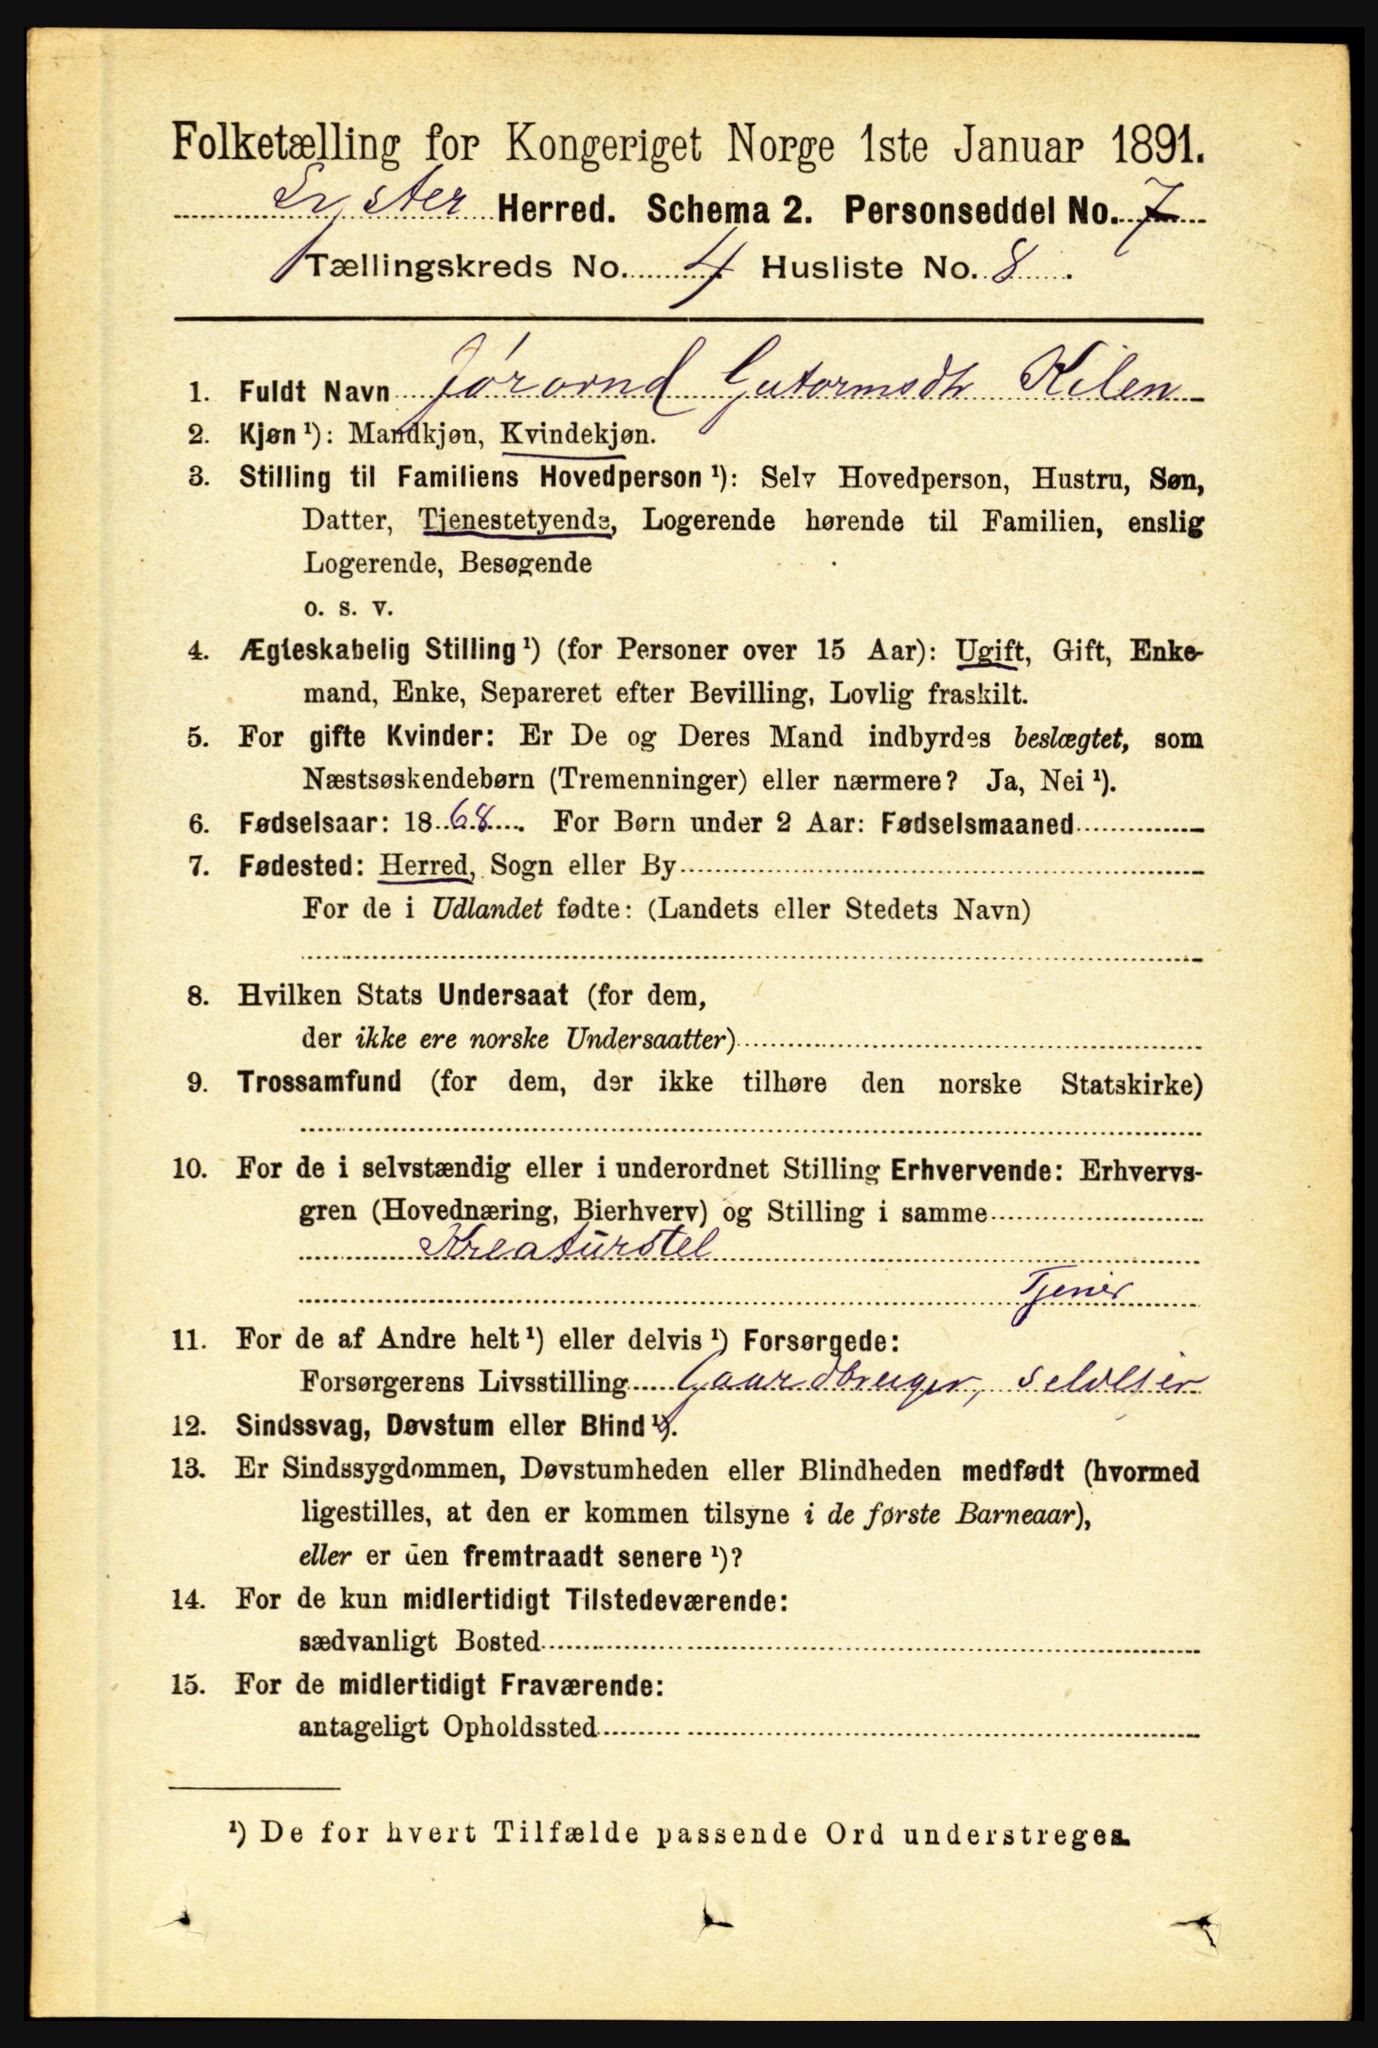 Folketælling for Kongeriget Norge 1ste Januar 1891.
Lyster Herred. Schema 2. Personseddel No. 7
Tællingskreds No. 4 Husliste No. 8.
1. Fuldt Navn Jórornd Gutormsdtr Kilen
2. Kjøn ¹): Mandkjøn, Kvindekjøn.
3. Stilling til Familiens Hovedperson ¹): Selv Hovedperson, Hustru, Søn,
Datter, Tjenestetyende, Logerende hørende til Familien, enslig
Logerende, Besøgende
o. s. v.
4. Ægteskabelig Stilling ¹) (for Personer over 15 Aar): Ugift, Gift, Enke-
mand, Enke, Separeret efter Bevilling, Lovlig fraskilt.
5. For gifte Kvinder: Er De og Deres Mand indbyrdes beslægtet, som
Næstsøskendebørn (Tremenninger) eller nærmere? Ja, Nei ¹).
6. Fødselsaar: 1868. For Børn under 2 Aar: Fødselsmaaned
7. Fødested: Herred, Sogn eller By
For de i Udlandet fødte: (Landets eller Stedets Navn)
8. Hvilken Stats Undersaat (for dem,
der ikke ere norske Undersaatter)
9. Trossamfund (for dem, der ikke tilhøre den norske Statskirke)
10. For de i selvstændig eller i underordnet Stilling Erhvervende: Erhvervs-
gren (Hovednæring, Bierhverv) og Stilling i samme
Kreaturstel
Tjener
11. For de af Andre helt ¹) eller delvis ¹) Forsørgede:
Forsørgerens Livsstilling Gaardbruger, Selveier
12. Sindssvag, Døvstum eller Blind ¹).
13. Er Sindssygdommen, Døvstumheden eller Blindheden medfødt (hvormed
ligestilles, at den er kommen tilsyne i de første Barneaar),
eller er den fremtraadt senere ¹)?
14. For de kun midlertidigt Tilstedeværende:
sædvanligt Bosted
15. For de midlertidigt Fraværende:
antageligt Opholdssted
¹) De for hvert Tilfælde passende Ord understreges.